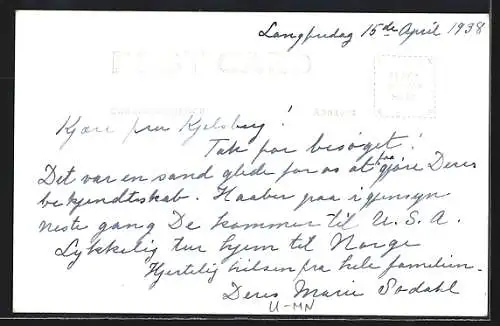 Langfredag 15de April 1938
Kjære fru Kjelsberg!
Tak for besøget!
Det var en sand glæde for os at faa gjøre Deres
bekjendtskab. Haaber paa igjensyn
neste gang De kommer til U.S.A.
Lykkelig tur hjem til Norge
Hjertelig hilsen fra hele familien.
Deres Marie Sodahl
U-MN